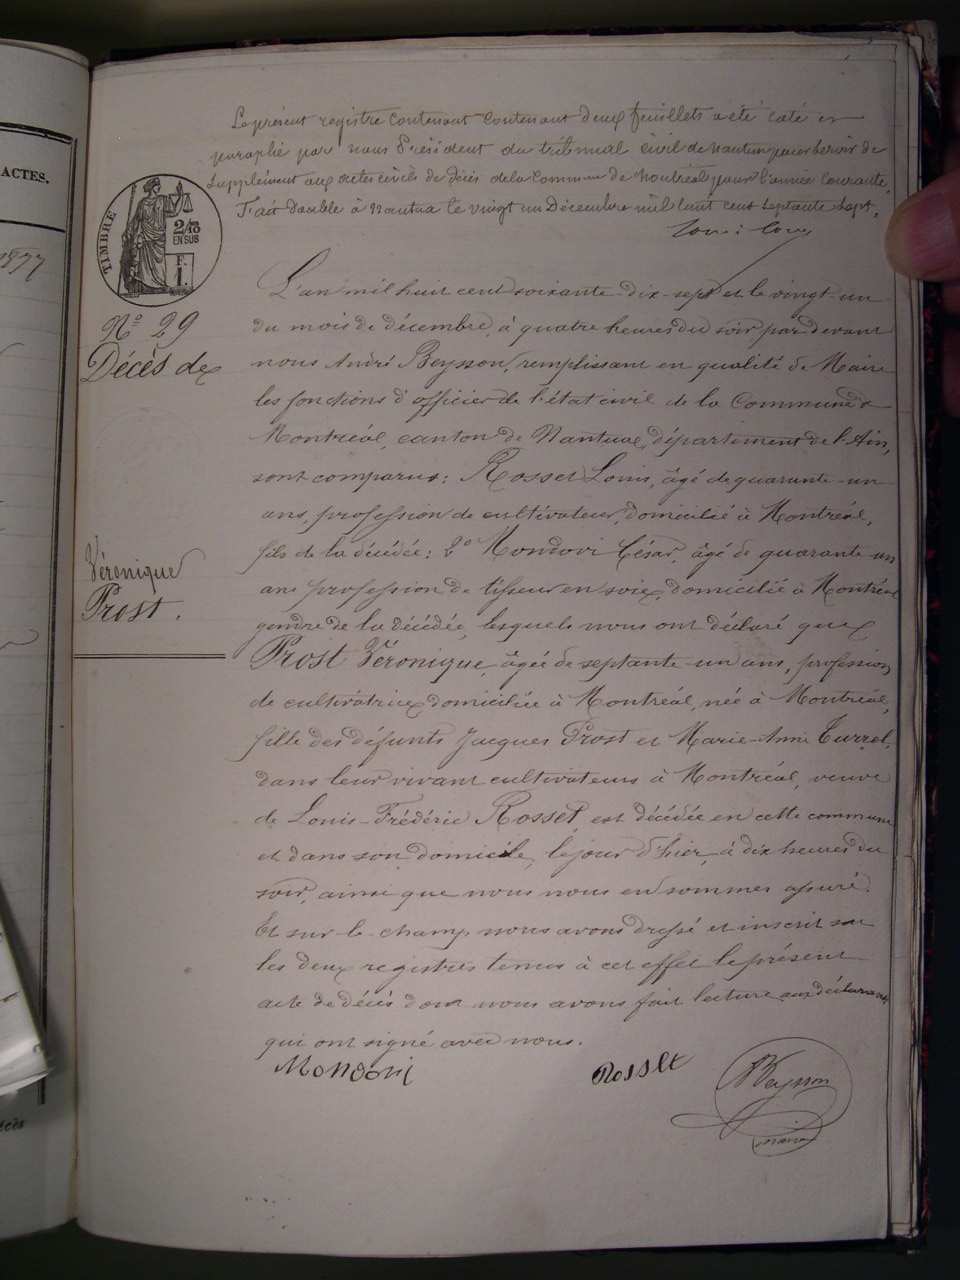 ACTES.
1877
Le présent registre contenant contenant deux feuillets a été coté et
paraphé par nous Président du tribunal civil de Nantua pour servir de
supplément aux actes civils de décès de la Commune de Montréal pour l'année courante.
Fait double à Nantua le vingt un Décembre mil huit cent septante sept.
TIMBRE
2/10
EN SUS
F.
1.
L'an mil huit cent soixante-dix-sept et le vingt-un
du mois de décembre, à quatre heures du soir, par devant
nous André Beysson, remplissant en qualité de Maire
les fonctions d'officier de l'état civil de la Commune de
Montréal, canton de Nantua, département de l'Ain,
sont comparus: Rosset Louis, âgé de quarante-un
ans, profession de cultivateur, domicilié à Montréal,
fils de la décédée; 2º Mondovi César, âgé de quarante-un
ans profession de tisseur en soie, domicilié à Montréal
gendre de la décédée, lesquels nous ont déclaré que
Prost Véronique, âgée de septante-un ans, profession
de cultivatrice, domiciliée à Montréal, née à Montréal,
fille des défunts Jacques Prost et Marie-Anne Turrel,
dans leur vivant cultivateurs à Montréal, veuve
de Louis-Frédéric Rosset, est décédée en cette commune
et dans son domicile, le jour d'hier, à dix heures du
soir, ainsi que nous nous en sommes assuré.
Et sur-le-champ nous avons dressé et inscrit sur
les deux registres tenus à cet effet le présent
acte de décès dont nous avons fait lecture aux déclarants
qui ont signé avec nous.
Nº 29
Décès de
Véronique
Prost.
Mondovi
Rosset
Beysson
maire